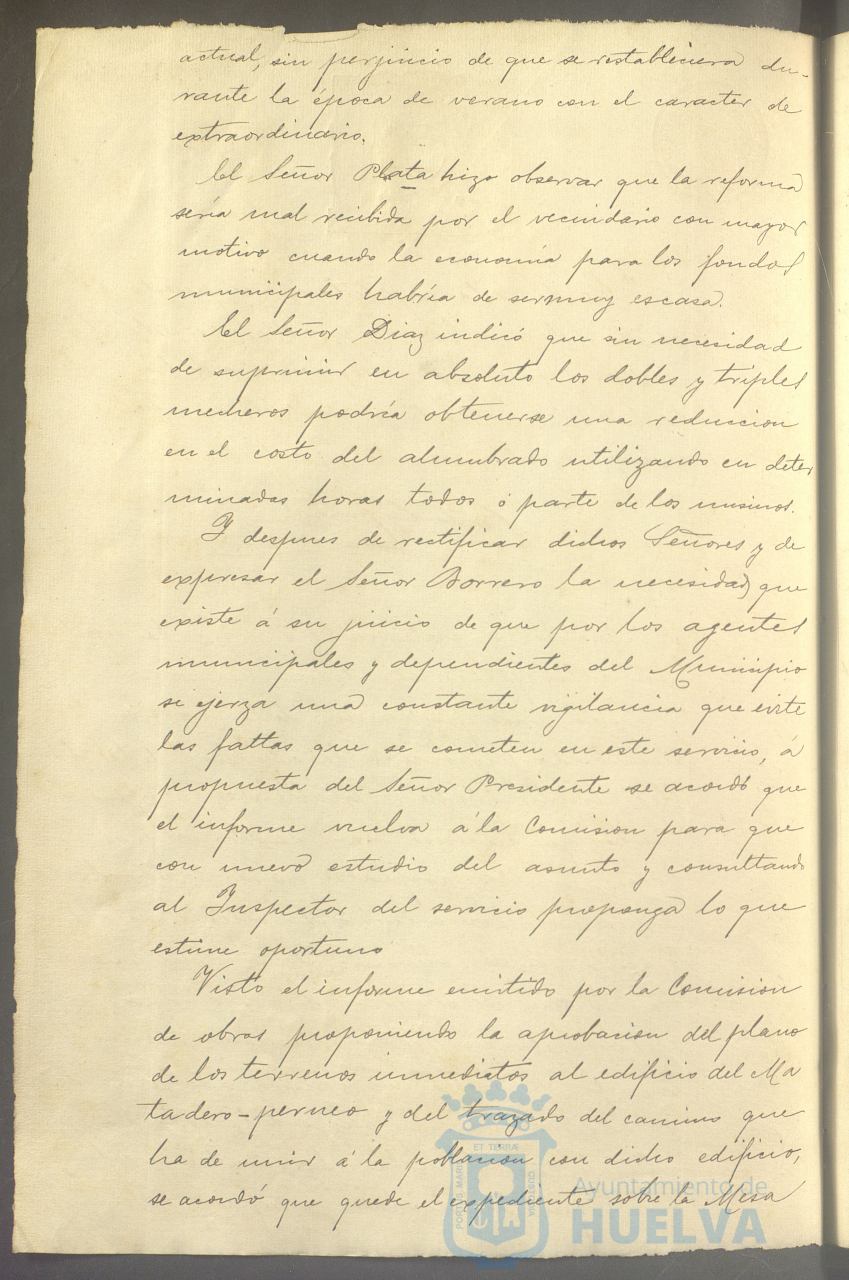 actual, sin perjuicio de que se restableciera du-
rante la época de verano con el caracter de
extraordinario.
El Señor Plata hizo observar que la reforma
sería mal recibida por el vecindario con mayor
motivo cuando la economía para los fondos
municipales habría de ser muy escasa.
El Señor Diaz indicó que sin necesidad
de suprimir en absoluto los dobles y triples
mecheros podría obtenerse una reduccion
en el costo del alumbrado utilizando en deter
minadas horas todos ó parte de los mismos.
Y despues de rectificar dichos Señores y de
expresar el Señor Borrero la necesidad que
existe á su juicio de que por los agentes
municipales y dependientes del Municipio
se ejerza una constante vigilancia que evite
las faltas que se cometen en este servicio, á
propuesta del Señor Presidente se acordó que
el informe vuelva á la Comision para que
con nuevo estudio del asunto y consultando
al Inspector del servicio proponga lo que
estime oportuno
Visto el informe emitido por la Comision
de obras proponiendo la aprobacion del plano
de los terrenos inmediatos al edificio del Ma
tadero-perneo y del trazado del camino que
ha de unir á la poblacion con dicho edificio,
se acordó que quede el expediente sobre la Mesa
Ayuntamiento de
HUELVA